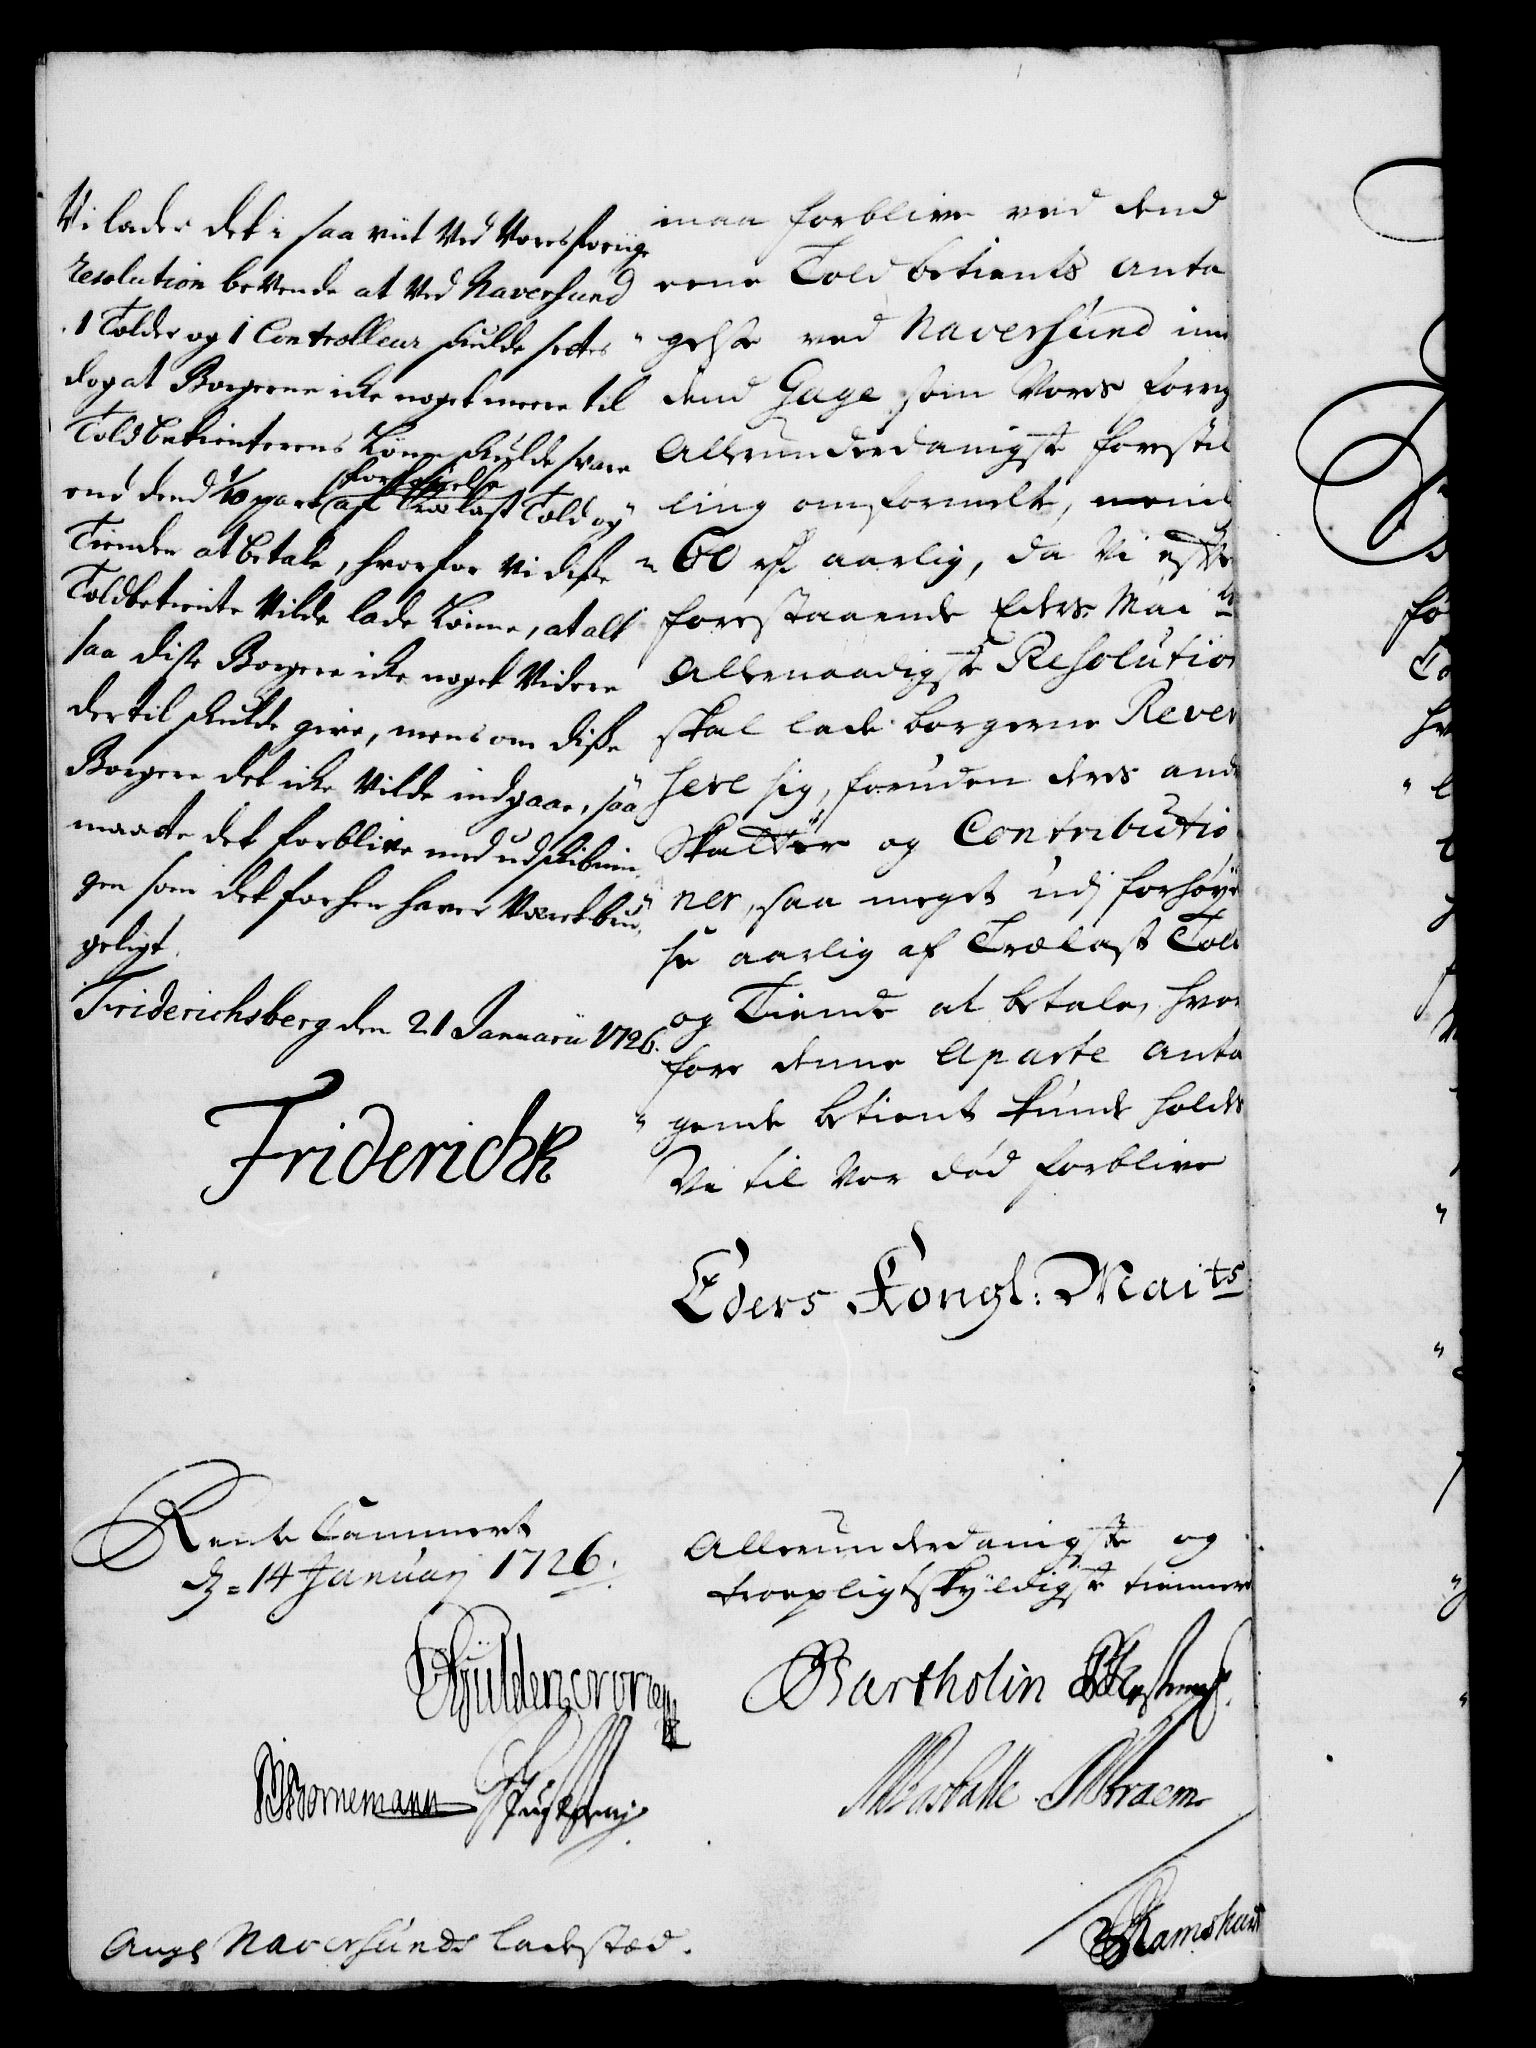 Vi lade det i saa viit Ved Vores forrige
resolution beVende at Ved Naversund
1 Tolder og 1 Controlleur skulde settes
dog at Borgerne icke noget meere til
Toldbetienternes Lönn skulde svare
end dend 1/10 part forhöyelse af Trælast Told og
Tienden at betale, hvorfor Vi disse
Toldbetiente Vilde lade Lönne, at alt
saa disse Borgere icke noget Videre
dertil skulde give, mens om disse
Borgere det icke Vilde indgaae, saa
maatte det forblive med udskibnin„
gen som det forhen haverVæret brü„
geligt.
Friderichsberg den 21 Januarii 1726.
Friderich R
maa forblive ved dend
eene Toldbetients anta
„gelse ved Naversund im
dend Gage som Vores forrig
Allerunderdanigste forestil
ling omformelte,
60 rd aarlig, da Vi efter
forestaaende Eders Mai ts
Allernaadigste Resolution
skal lade borgerne Rever
sere sig, foruden deres andr
Skatter og Contributio
ner, saa meget udj forhöyel
se aarlig af Trælast Told
og Tiende at betale, hvor
fore denne aparte anta
„gende betient kunde holdes
Vi til Vor död forblive
Eders Kongl: Mai ts
Rente Cammeret
d = 14 Januarj 1726.
Allerunderdanigste og
troepligtskyldigste tiennere
Güldencrone
Bartholin
Bornemann
Ramshart
Ang: Naversunds ladestæd.